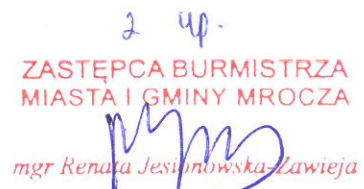 z up.
ZASTĘPCA BURMISTRZA
MIASTA I GMINY MROCZA
mgr Renata Jesionowska-Zawieja